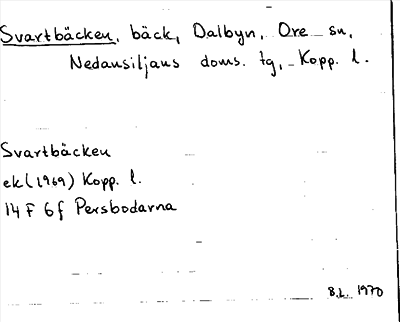 Svartbäcken, bäck, Dalbyn, Ore sn,
Nedansiljans doms. tg, Kopp. l.
Svartbäcken
ek (1969) Kopp. l.
14 F 6 f Persbodarna
B.L. 1970